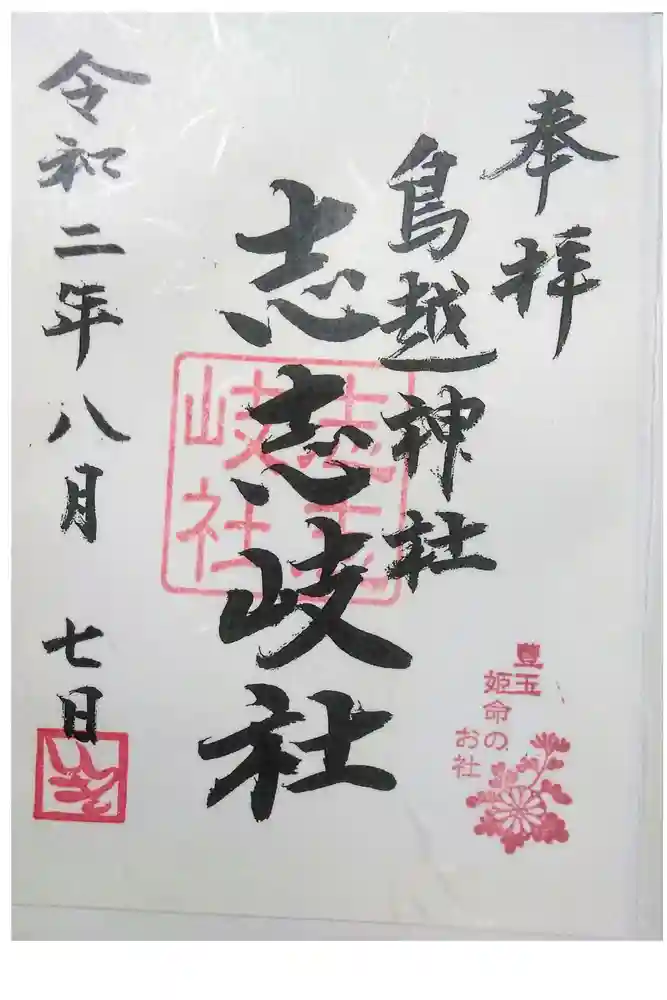 奉拝
鳥越神社
志志岐社
令和二年八月七日
志志
岐社
豊玉
姫命の
お社